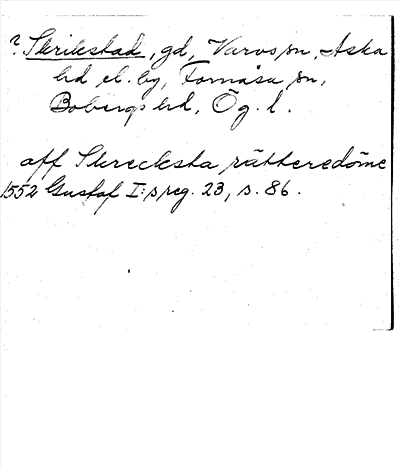 ? Skrikstad, gd, Varvs sn, Aska
hd el. by, Fornåsa sn,
Bobergs hd, Ög. l.
aff Skrecksta rätteredöme
1552 Gustaf I:s reg. 23, s. 86.